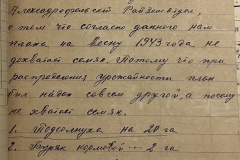 Александрофельский Райземотдел
о том что согласно данного нам
плана на весну 1943 года не
дохватает семян. Потому что при
распределения урожайности план
был надан совсем другой, а посему
не хватает семян.
1. Подсолнуха на 20 га
2. Буряк кормовой — 2 га